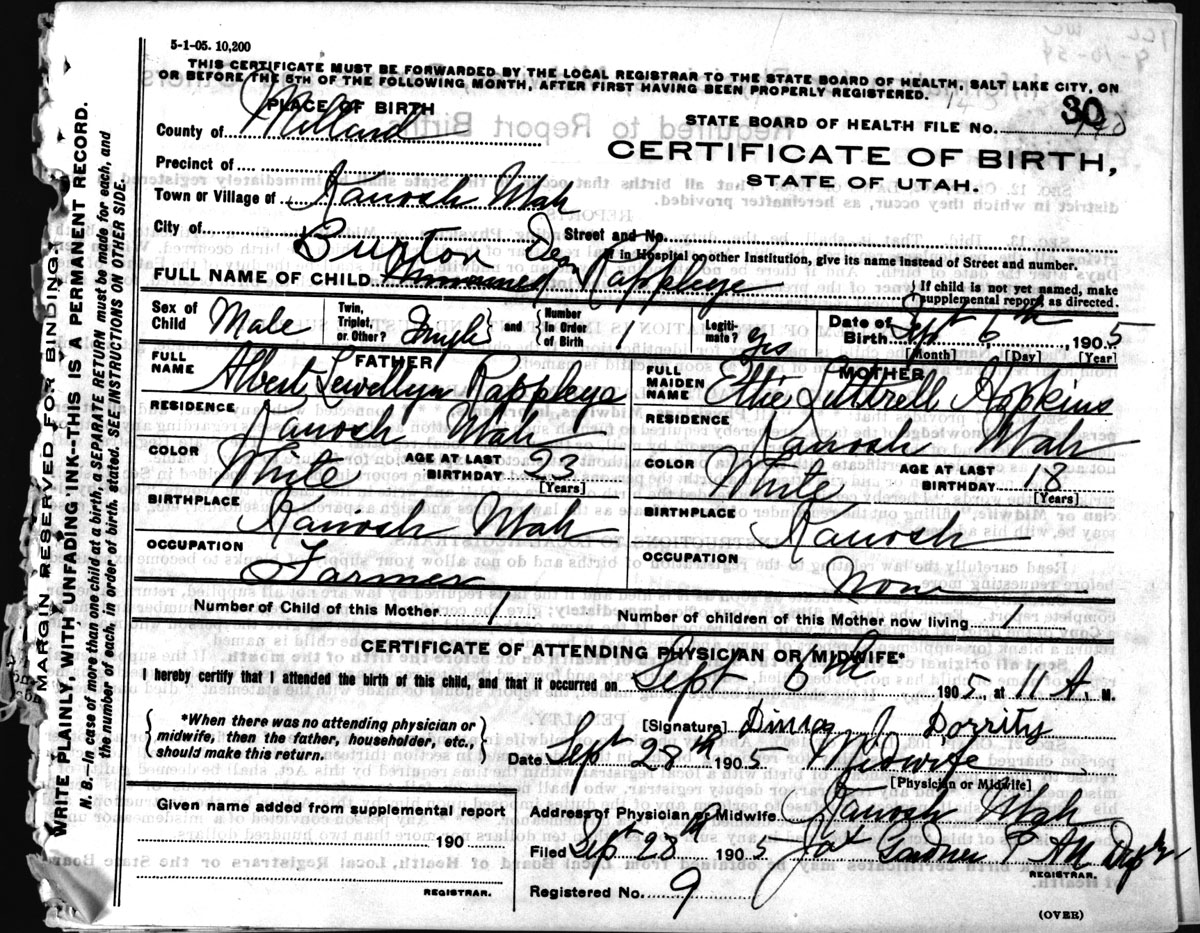 5-1-05. 10,200
THIS CERTIFICATE MUST BE FORWARDED BY THE LOCAL REGISTRAR TO THE STATE BOARD OF HEALTH, SALT LAKE CITY, ON
OR BEFORE THE 5TH OF THE FOLLOWING MONTH, AFTER FIRST HAVING BEEN PROPERLY REGISTERED.
PLACE OF BIRTH
County of Millard
STATE BOARD OF HEALTH FILE No. 30
CERTIFICATE OF BIRTH,
STATE OF UTAH.
Precinct of
Town or Village of Kanosh Utah
City of
Street and No.
[If in Hospital or other Institution, give its name instead of Street and number.
Burton Dean
FULL NAME OF CHILD Unnamed Rappleye
{ If child is not yet named, make
supplemental report, as directed.
Sex of Child Male
Twin, Triplet, or Other? Single } and { Number in Order of Birth 1
Legiti-mate? yes
Date of Birth Sept 6th, 1905
[Month] [Day] [Year]
FATHER
FULL NAME Albert Lewellyn Rappleye
RESIDENCE Kanosh Utah
COLOR White AGE AT LAST BIRTHDAY 23
[Years]
BIRTHPLACE
Kanosh Utah
OCCUPATION
Farmer
MOTHER
FULL MAIDEN NAME Effie Luttrell Hopkins
RESIDENCE Kanosh Utah
COLOR White AGE AT LAST BIRTHDAY 18
[Years]
BIRTHPLACE Kanosh
OCCUPATION None
Number of Child of this Mother 1
Number of children of this Mother now living 1
CERTIFICATE OF ATTENDING PHYSICIAN OR MIDWIFE.*
I hereby certify that I attended the birth of this child, and that it occurred on Sept 6th 1905, at 11 A. M.
{ *When there was no attending physician or
midwife, then the father, householder, etc.,
should make this return. }
[Signature] Dorrity
Date Sept 28th 1905 Midwife
[Physician or Midwife]
Given name added from supplemental report
190
REGISTRAR.
Address of Physician or Midwife Kanosh Utah
Filed Sept 28th 1905 Gardner
REGISTRAR.
Registered No. 9
(OVER)
MARGIN RESERVED FOR BINDING.
WRITE PLAINLY, WITH UNFADING INK--THIS IS A PERMANENT RECORD.
N. B.--In case of more than one child at a birth, a SEPARATE RETURN must be made for each, and
the number of each, in order of birth, stated. SEE INSTRUCTIONS ON OTHER SIDE.